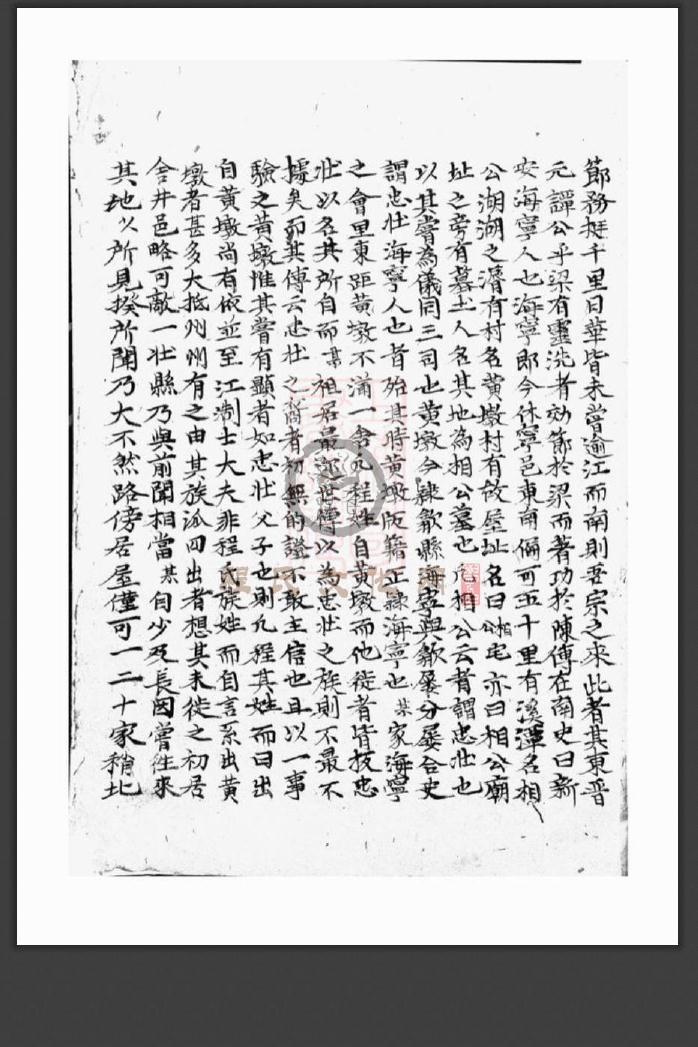 節務挺千里日華皆未嘗逾江而南則吾宗之來此者其東晋
元譚公乎梁有靈洗者効節於梁而著功於陳傳在南史曰新
安海寧人也海寧郎今休寧邑東南偏可五十里有溪潭名相
公湖湖之濱有村名黄墩村有故屋址名曰相公宅亦曰相公廟
址之旁有墓土人名其地為相公墓也凡相公云者謂忠壮也
以其嘗為儀同三司也黄墩今隸歙縣海寧與歙屡分屡合史
謂忠壮海寧人也者殆其時黄墩版籍正隸海寧也某家海寧
之會里東距黄墩不滿一舍凡程姓自黄墩而他徙者皆扳忠
壮以名其所自而某祖居最迩世傳以為忠壮之族則不最不
據矣而其傳云忠壮之裔者初無的證不敢主信也且以一事
驗之黄墩惟其嘗有顯者如忠壮父子也則凡程其姓而曰出
自黄墩尚有依並至江制士大夫非程氏族姓而自言系出黄
墩者甚多大抵州州有之由其族派曰出者想其未徙之初居
舍井邑略可敵一壮縣乃與前聞相當某自少及長因嘗往來
其地以所見揆所聞乃大不然路傍居屋僅可一二十家稍北
程氏文化